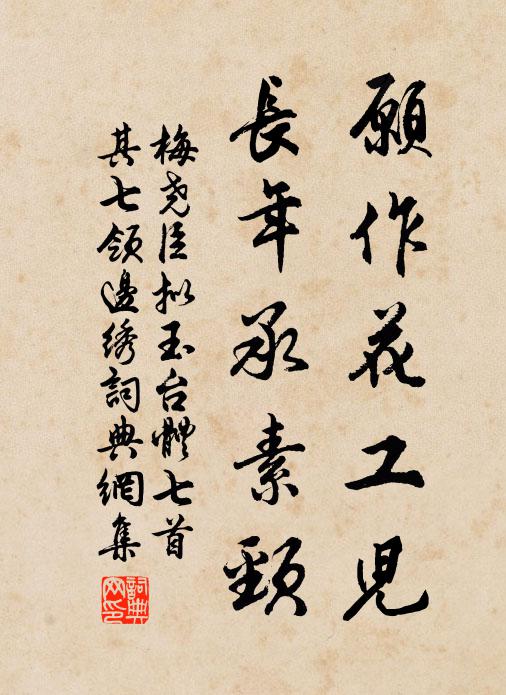 願作花工兒
長年承素頸
梅尧臣拟玉台體七首
其七领邊绣詞典網集
詞典网印